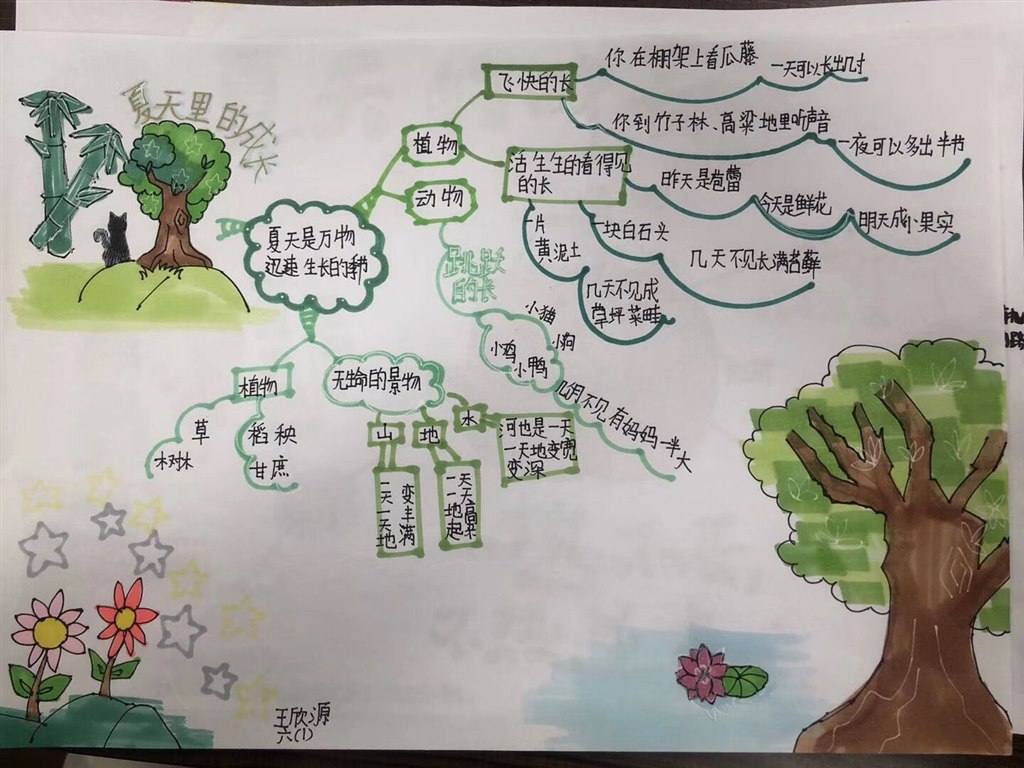 夏天里的成长
夏天是万物
迅速生长的季节
植物
飞快的长
你在棚架上看瓜藤
一天可以长出几寸
你到竹子林、高粱地里听声音
一夜可以多出半节
活生生的看得见
的长
昨天是苞蕾
今天是鲜花
明天成小果实
一块白石头
几天不见长满苔藓
一片
黄泥土
几天不见成
草坪菜畦
动物
跳跃
的长
小猫
小狗
小鸡
小鸭
几个月不见有妈妈一半大
植物
草
树林
稻秧
甘蔗
无生命的景物
山
一天一天地
变丰满
地
一天一地起
天高来
水
河也是一天
一天地变宽
变深
王欣源
六(1)